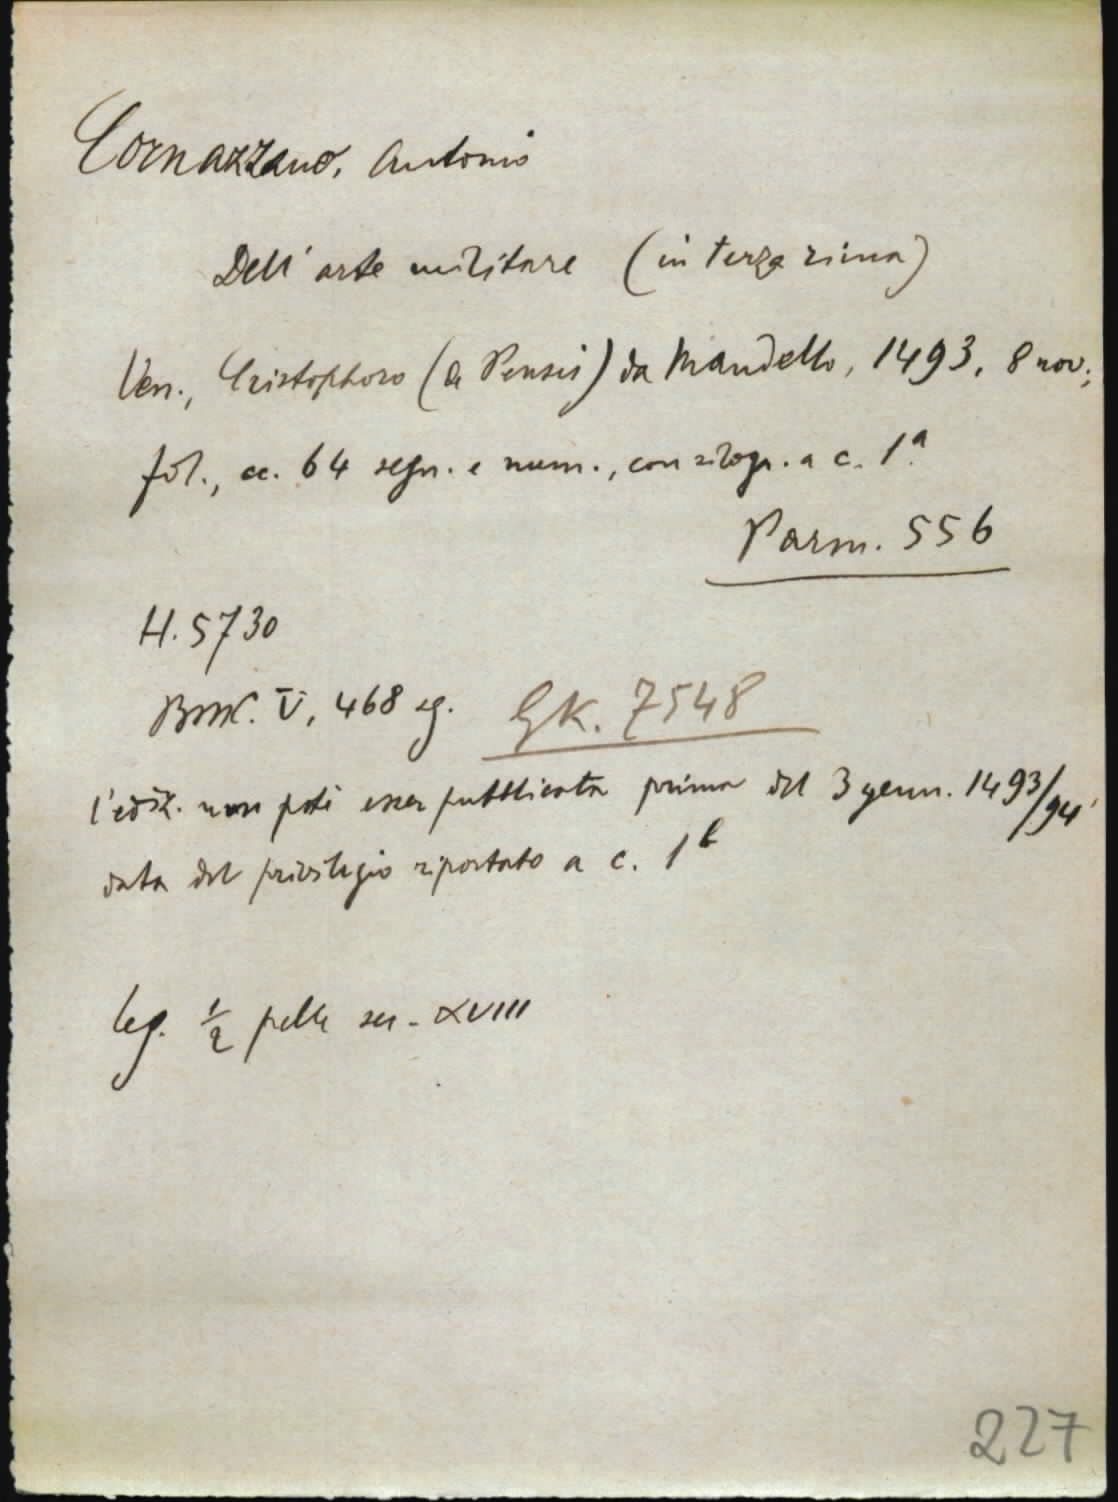 Cornazzano, Antonio
Dell'arte militare (in terza rima)
Ven., Cristophoro (de Pensis) da Mandello, 1493, 8 nov.;
fol., cc. 64 segn. e num., con xilogr. a c. 1ª.
Parm. 556
H. 5730
BMC. V, 468 sg. GK. 7548
l'ediz. non poté esser pubblicata prima del 3 genn. 1493/94
data del privilegio riportato a c. 1b
leg. 1/2 pelle sec. XVIII
227